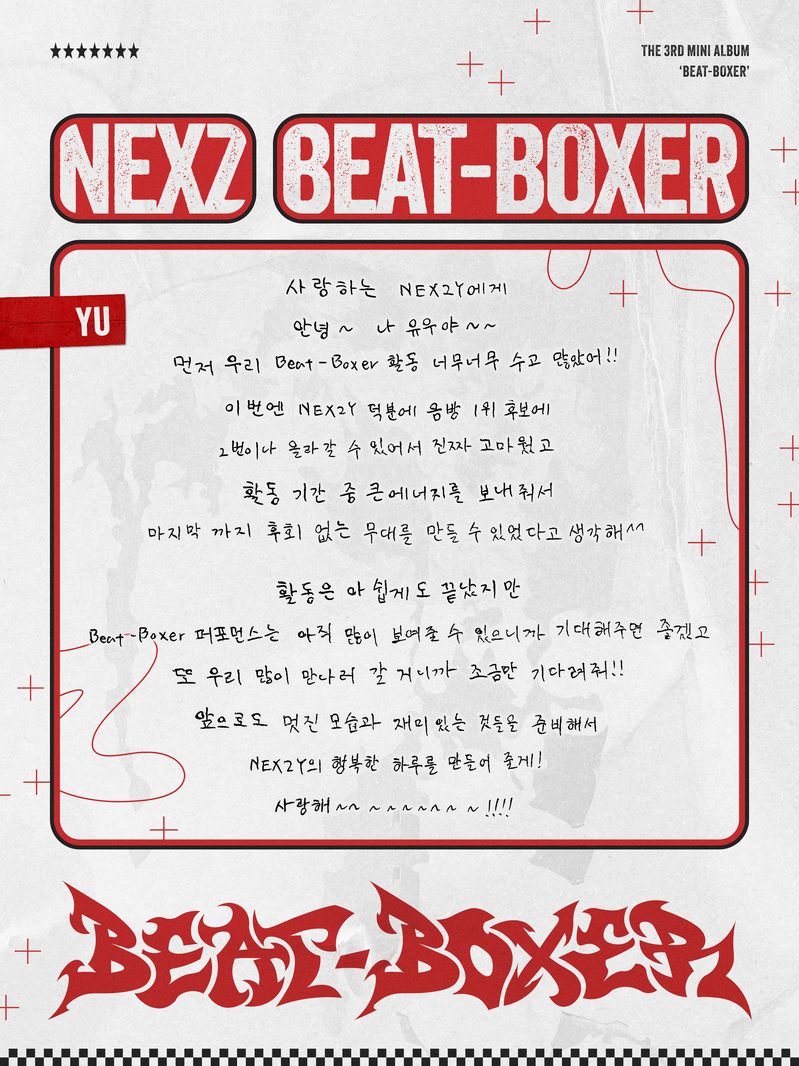 ★★★★★★★
THE 3RD MINI ALBUM
'BEAT-BOXER'
NEXZ BEAT-BOXER
YU
사랑하는 NEX2Y에게
안녕~ 나 유우야~~
먼저 우리 Beat-Boxer 활동 너무너무 수고 많았어!!
이번엔 NEX2Y 덕분에 음방 1위 후보에
2번이나 올라갈 수 있어서 진짜 고마웠고
활동 기간 중 큰 에너지를 보내줘서
마지막 까지 후회 없는 무대를 만들 수 있었다고 생각해^^
활동은 아쉽게도 끝났지만
Beat-Boxer 퍼포먼스는 아직 많이 보여줄 수 있으니까 기대해주면 좋겠고
또 우리 많이 만나러 갈 거니까 조금만 기다려줘!!
앞으로도 멋진 모습과 재미있는 것들을 준비해서
NEX2Y의 행복한 하루를 만들어 줄게!
사랑해~~ ~~~~~~~ ~!!!!
BEAT-BOXER